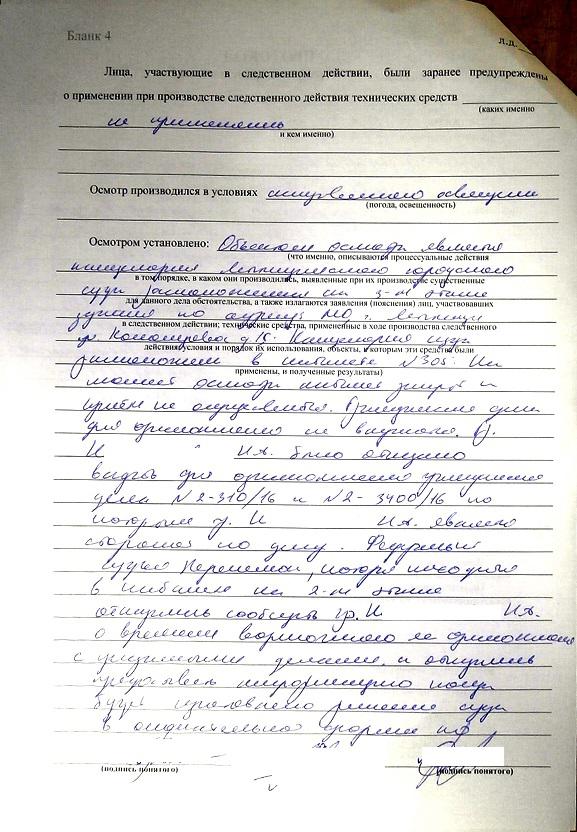 Бланк 4
л.д.
Лица, участвующие в следственном действии, были заранее предупреждены
о применении при производстве следственного действия технических средств
(каких именно
не применялись
и кем именно)
Осмотр производился в условиях искусственного освещения
(погода, освещенность)
Осмотром установлено: Объектом осмотра является
(что именно, описываются процессуальные действия
канцелярия городского
в том порядке, в каком они производились, выявленные при их производстве существенные
суда расположенная на 3-м этаже
для данного дела обстоятельства, а также излагаются заявления (пояснения) лиц, участвовавших
здания по адресу МО г.
в следственном действии; технические средства, примененные в ходе производства следственного
д.16. Канцелярия суда
действия, условия и порядок их использования, объекты, к которым эти средства были
расположена в кабинете N 305. На
применены, и полученные результаты)
момент осмотра кабинет закрыт и
приём не осуществляется. Гражданские дела
для ознакомления не выданы. Гр.
И И.А. было отказано
выдать для ознакомления гражданские
дела N 2-310/16 и N 2-3400/16 по
которым гр. И И.А. является
стороной по делу. Федеральный
судья, которая находилась
в кабинете на 2-м этаже
отказались сообщить гр. И И.А.
о времени возможного ее ознакомления
с гражданскими делами, и отказались
информацию когда
будет изготовлено решение суда
в окончательной форме
(подпись понятого) (подпись понятого)